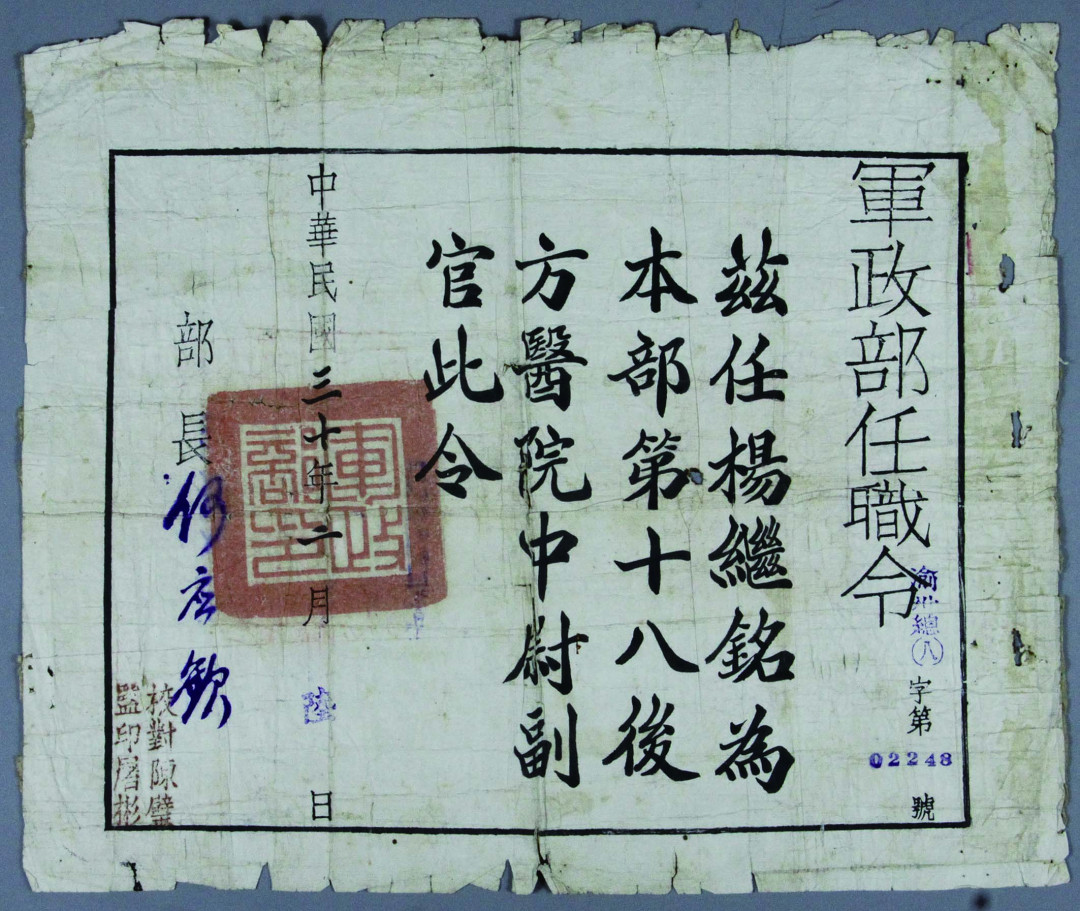 軍政部任職令
渝 總㈧
字第
02248
號
茲任楊繼銘為
本部第十八後
方醫院中尉副
官此令
中華民國三十年二月陸日
軍政部印
部長何应欽
校對陳璧
監印屠彬